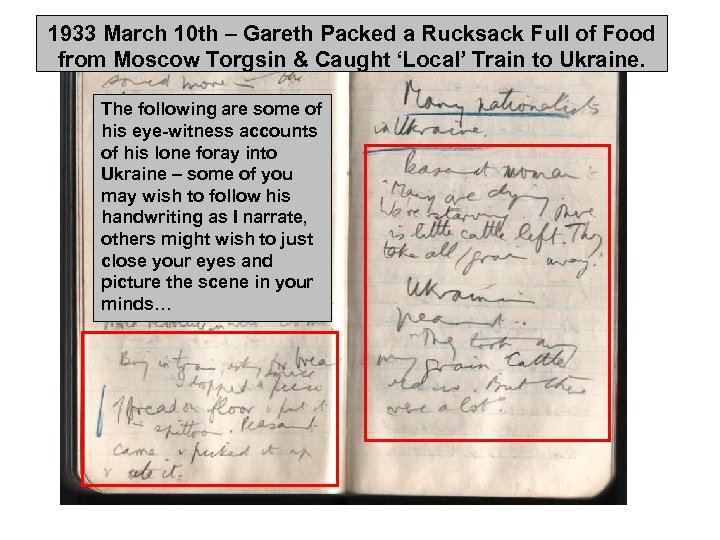 1933 March 10 th – Gareth Packed a Rucksack Full of Food
from Moscow Torgsin & Caught ‘Local’ Train to Ukraine.
The following are some of
his eye-witness accounts
of his lone foray into
Ukraine – some of you
may wish to follow his
handwriting as I narrate,
others might wish to just
close your eyes and
picture the scene in your
minds…
more in the
Boy in train asking for bread
dropped a piece
of bread on floor & put it
in spittoon. Peasant
came & picked it up
& ate it.
Many nationalists
in Ukraine.
woman :
"Many are dying.
We're starving. There
is little cattle left. They
take all grain away."
Ukrainian
peasant..
"They took
my grain cattle
But there
were a lot."